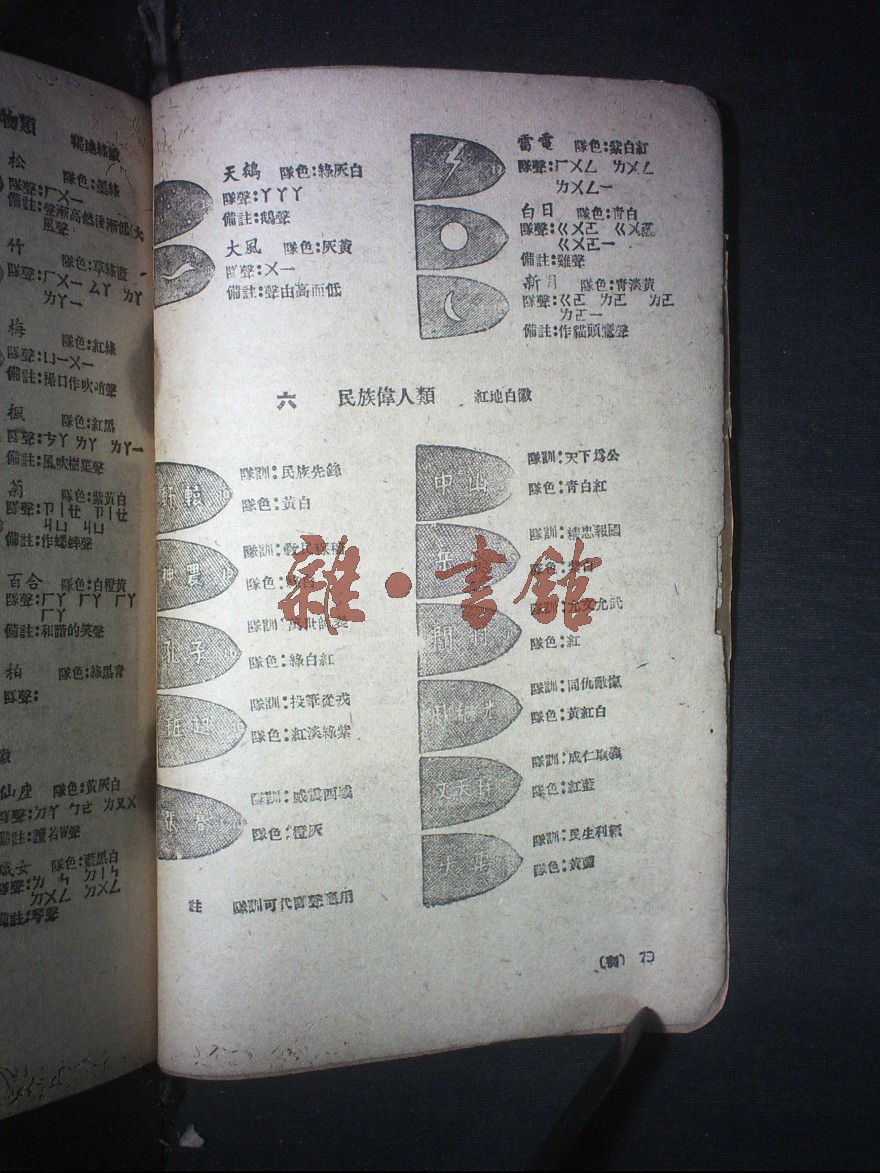 物類
松 隊色:墨綠
隊聲:ㄏㄨ一
備註:聲漸高然後漸低(大
風聲
竹 隊色:草綠藍
隊聲:ㄏㄨ一 ㄙㄚ ㄌㄚ
ㄌㄚ一
梅 隊色:紅綠
隊聲:ㄩ一ㄨ一
備註:撮口作吹哨聲
楓 隊色:紅黑
隊聲:ㄘㄚ ㄌㄚ ㄌㄚ一
備註:風吹樹葉聲
菊 隊色:紫黃白
備註:作蟋蟀聲
百合 隊色:白橙黃
隊聲:ㄏㄚ ㄏㄚ ㄏㄚ
ㄏㄚ
備註:和諧的笑聲
柏 隊色:綠黑青
隊聲:
徽
仙座 隊色:黃灰白
備註:讀若W聲
織女 隊色:藍黑白
備註:琴聲
天鵝 隊色:綠灰白
隊聲:ㄚㄚㄚ
備註:鵝聲
大風 隊色:灰黃
隊聲:ㄨ一
備註:聲由高而低
雷電 隊色:紫白紅
隊聲:ㄏㄨㄥ ㄌㄨㄥ
ㄌㄨㄥ一
白日 隊色:青白
隊聲:ㄍㄨㄛ ㄍㄨㄛ
ㄍㄨㄛ一
備註:雞聲
新月 隊色:青淡黃
隊聲:ㄍㄛ ㄌㄛ ㄌㄛ
ㄌㄛ一
備註:作貓頭鷹聲
六 民族偉人類 紅地白徽
軒轅
隊訓:民族先鋒
隊色:黃白
神農
隊訓:教民稼穡
隊色:
孔子
隊訓:萬世師表
隊色:綠白紅
班超
隊訓:投筆從戎
隊色:紅淡綠紫
隊訓:威震西域
隊色:橙灰
中山
隊訓:天下爲公
隊色:青白紅
岳飛
隊訓:精忠報國
隊訓:允文允武
隊色:紅
戚繼光
隊訓:同仇敵愾
隊色:黃紅白
文天祥
隊訓:成仁取義
隊色:紅藍
大禹
隊訓:民生利賴
註 隊訓可代替聲應用
雜·書館
79